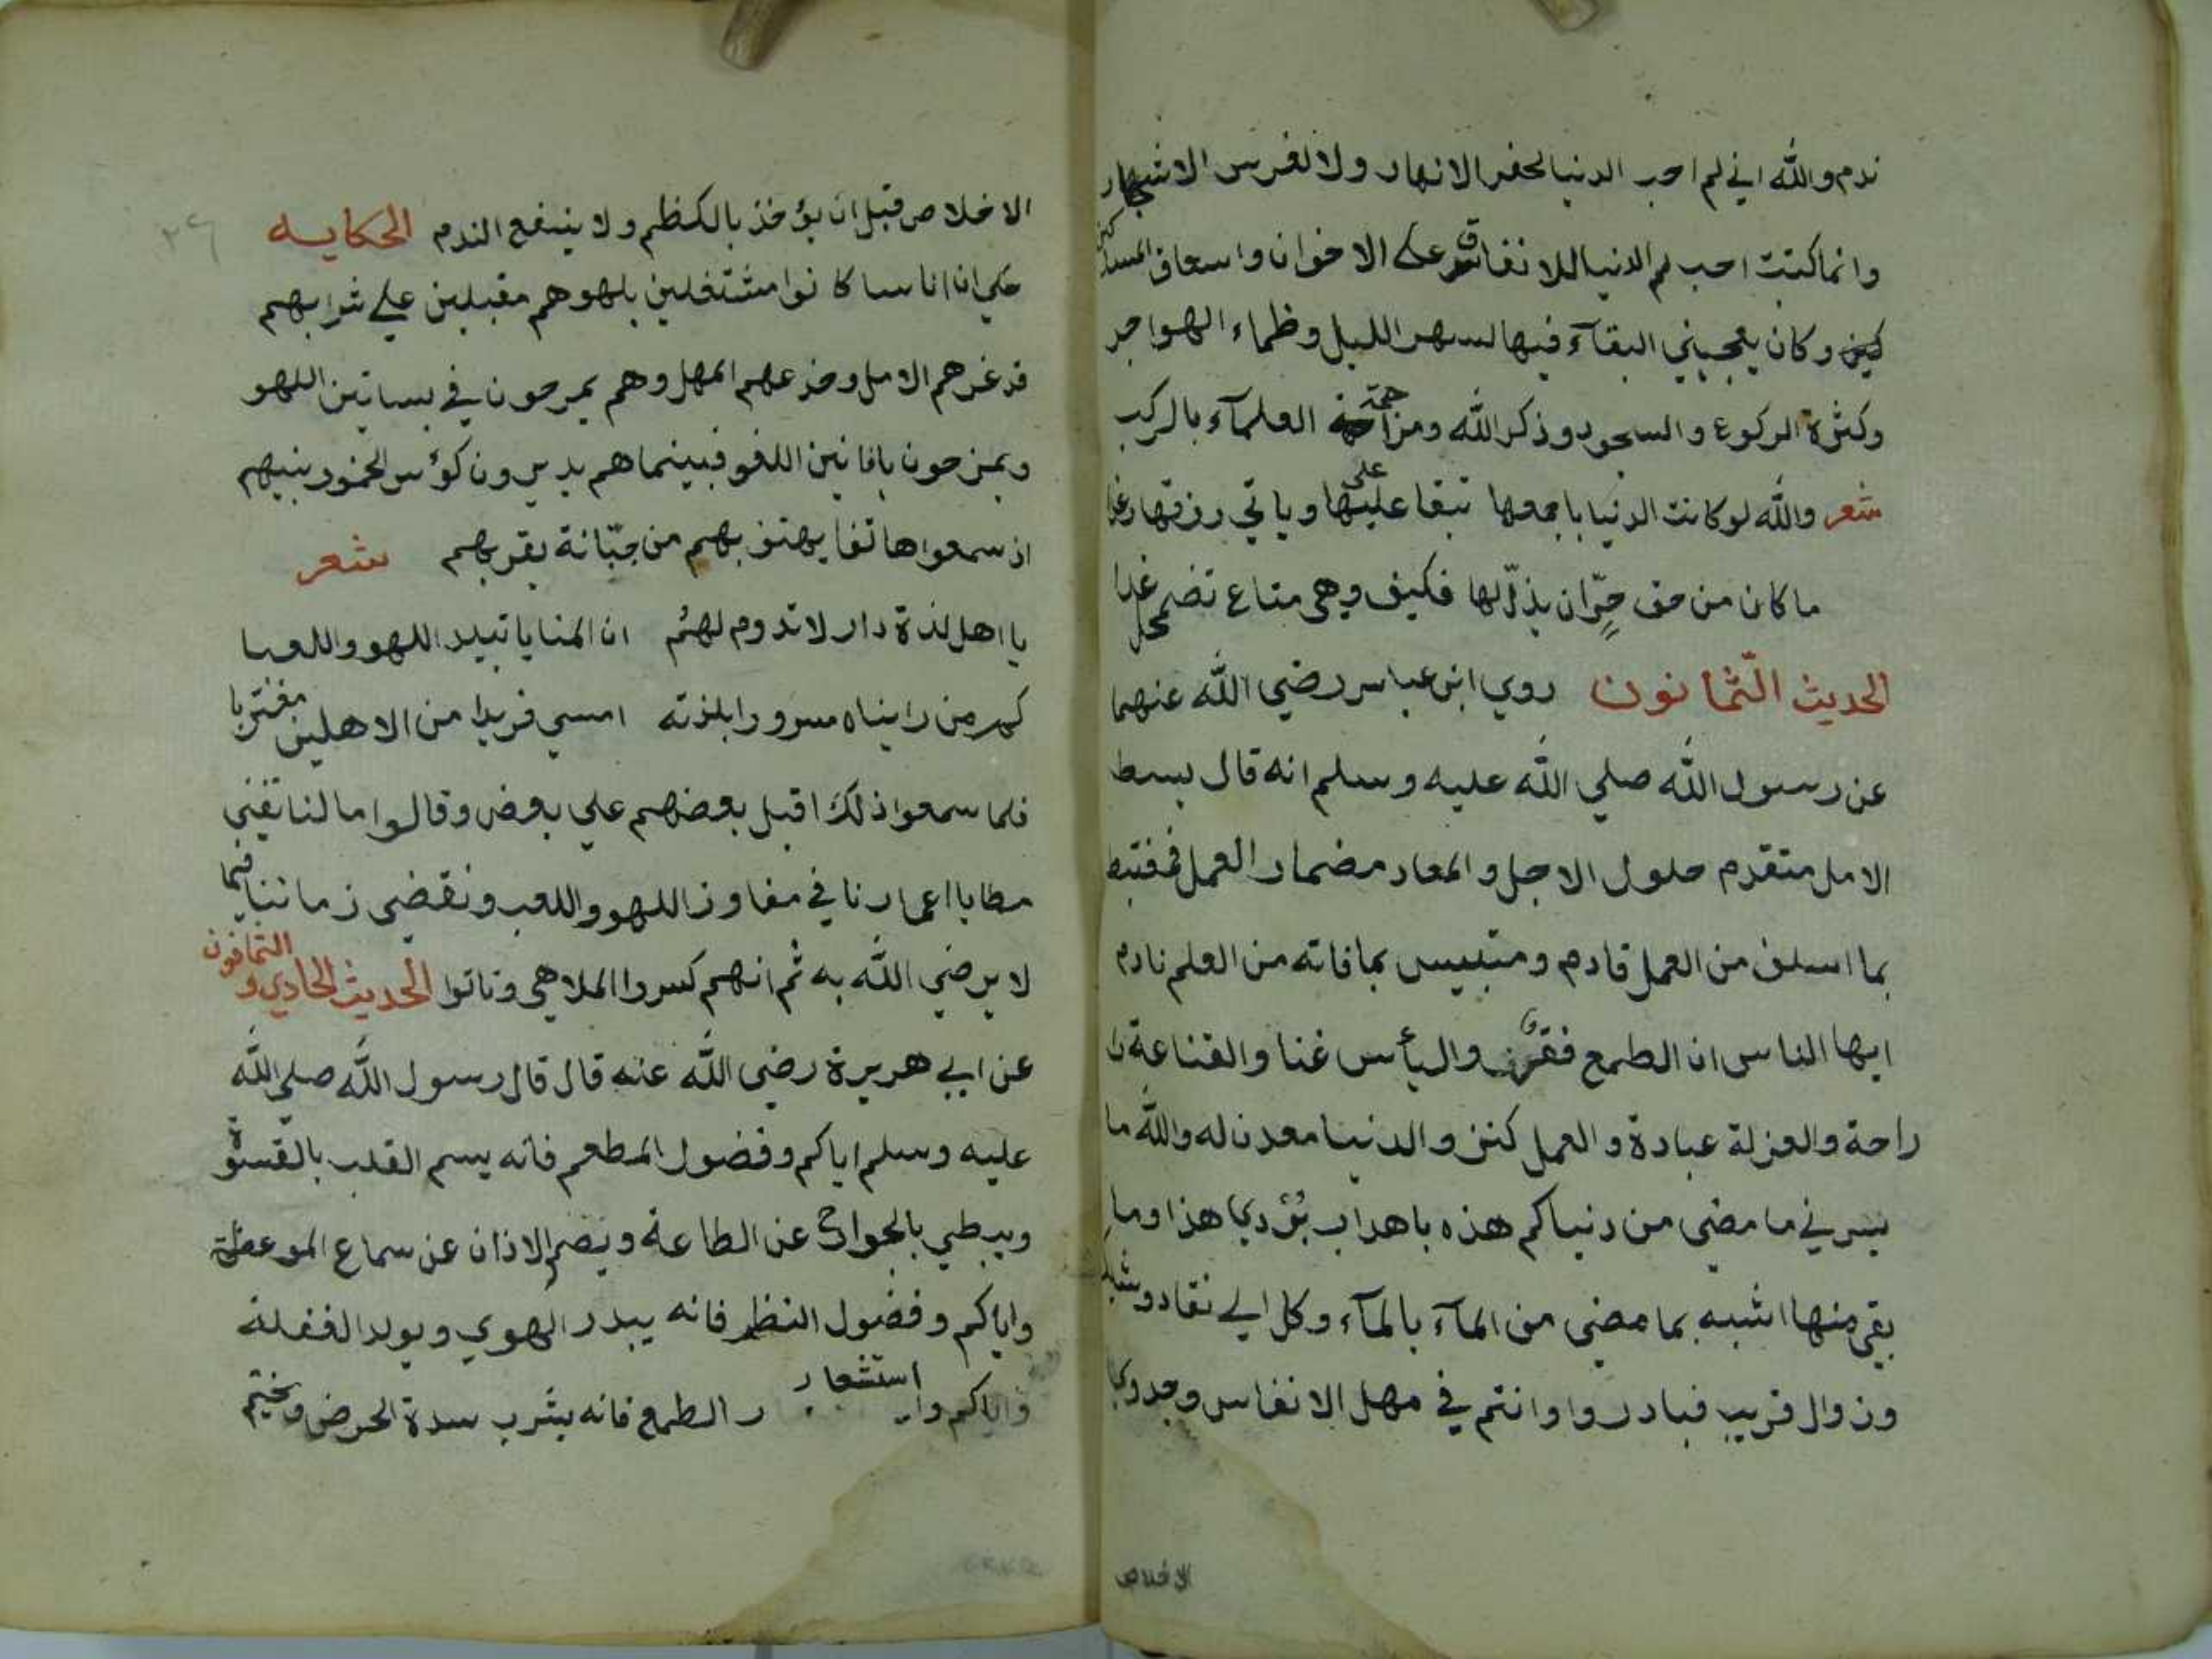 ندم والله اني لم احب الدنيا لحفر الانهار ولا لغرس الاشجار
وانما كنت احب لم الدنيا للانفاق على الاخوان واسعاف المسا
كين وكان يعجبني البقآء فيها لسهر الليل وظماء الهواجر
وكثرة الركوع والسجود وذكر الله ومزاحمة العلمآء بالركب
شعر والله لو كانت الدنيا باجمعها تبقا علينا وياتي رزقها رغدا
ما كان من حق حرّ ان يذلّ لها فكيف وهي متاع تضمحل غدا
الحديث الثمانون روي ابن عباس رضي الله عنهما
عن رسول الله صلي الله عليه وسلم انه قال بسط
الامل متقدم حلول الاجل والمعاد مضمار العمل فمغتبط
بما اسلف من العمل قادم ومتبيس بما فاته من العلم نادم
ايها الناس ان الطمع فقر والياس غنا والقناعة را
راحة والعزلة عبادة والعمل كنز والدنيا معدن له والله ما
يسرني ما مضى من دنياكم هذه باهداب بؤدي هذا وما
بقي منها اشبه بما مضي من المآء بالمآء وكل الي نفاد وشيك
وزوال قريب فبادروا وانتم في مهل الانفاس وجدوكا
الاخلاص
٢٦
الاخلاص قبل ان يؤخذ بالكظم ولا ينفع الندم الحكايه
حكي ان اناسا كانوا مشتغلين بلهوهم مقبلين علي شرابهم
قد غرهم الامل وخدعهم المهل وهم يمرحون في بساتين اللهو
ويمزحون بافانين اللغو فبينما هم يديرون كؤس الخمور بينهم
اذ سمعوا هاتفا يهتف بهم من جبّانة بقربهم شعر
يا اهل لذة دار لا تدوم لهم ان المنايا تبيد اللهو واللعبا
كم من رايناه مسرورا بلذته امسي فريدا من الاهلين مغتربا
فلما سمعوا ذلك اقبل بعضهم علي بعض وقالوا مالنا نفني
مطايا اعمارنا في مفاوز اللهو واللعب ونقضي زماننا فيما
لا يرضي الله به ثم انهم كسروا الملاهي وتابوا الحديث الحادي والثمانون
عن ابي هريرة رضي الله عنه قال قال رسول الله صلي الله
عليه وسلم اياكم وفضول المطعم فانه يسم القلب بالقسوة
ويبطي بالجوارح عن الطاعة ويصم الاذان عن سماع الموعظة
واياكم وفضول النظر فانه يبدر الهوي ويولد الغفلة
واياكم واستشعار الطمع فانه يشرب سدة الحرص ويختم